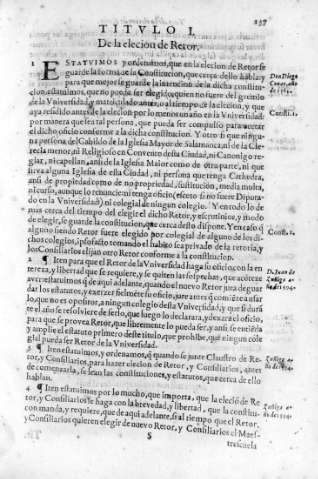 157
TITVLO I.
De la elecion de Retor.
1 ESTATVIMOS y ordenamos, que en la elecion de Retor se
guarde la forma de la Constitucion, que cerca dello habla, y
para que mejor se guarde la intencion de la dicha constitu
cion, estatuimos, que no pueda ser elegido quien no fuere del gremio
de la Vniversidad, y matriculado antes, o al tiempo de la elecion, y que
aya residido antes de la elecion por lo menos un año en la Vniversidad:
por manera que sea tal persona, que pueda ser compelido para acetar
el dicho oficio conforme a la dicha constitucion. Y otro si que el
persona del Cabildo de la Iglesia Mayor de Salamanca, ni de la Cle
recia menor, ni Religioso en Convento desta Ciudad, ni Canonigo re
glar, ni capellan, ansi de la Iglesia Maior como de otra parte, ni que
sirva alguna Iglesia de esta Ciudad, ni persona que tenga Cathedra,
ansi de propiedad como de no propiedad, sustitucion, media multa,
ni cursos, aunque lo renuncie, ni tenga oficio (eceto si no fuere Diputa-
do en la Vniversidad) ni colegial de ningun colegio. Y en todo lo de
mas cerca del tiempo del elegir el dicho Retor, y escrutinios, y modo
de elegir, se guarde la constitucion, que cerca desto dispone. Y en caso que
alguno siendo Retor fuere elegido por colegial de alguno de los di-
chos colegios, ipso facto tomando el habito sea privado de la retoria, y
los Consiliarios elijan otro Retor conforme a la constitucion.
2 ¶ Iten para que el Retor de la Vniversidad haga su oficio, con la en
tereza, y libertad que se requiere, y se quiten las sospechas, que acontece
aver: estatuimos que de aqui adelante, quando el nuevo Retor jura de guar
dar los estatutos, y exercer fielmente su oficio, jure antes que comience a usar
lo, que no es opositor, a ningun colegio desta Vniversidad, y que si duran
te el año se resolviere de serlo, que luego lo declarara, y dexara el oficio,
para que se provea Retor, que libremente lo pueda ser, y ansi se entienda
y amplie el estatuto primero deste titulo, que prohibe, que ningun cole
gial pueda ser Retor de la Vniversidad.
3 ¶ Iten estatuimos, y ordenamos, que quando se junte Claustro de Re-
tor, y Consiliarios, para hazer elecion de Retor, y Consiliarios, antes
de començarla, se lean las constituciones, y estatutos, que cerca de ello
hablan.
4 ¶ Iten estatuimos por lo mucho, que importa, que la eleció de Re
tor, y Consiliarios se haga con la brevedad, y libertad, que la constitu-
cion manda, y requiere, que de aqui adelante, si al tiempo que el Retor,
y Consiliarios quieren elegir de nuevo Retor, y Consiliarios el Maes-
S
trescuela
Don Diego
Covar. año
de 1561.
Consti. 1.
Consti. 1.
D. Juan de
Zuñiga a-
ño de 1594.
Zuñiga a-
ño de 1594.
Zuñiga a-
ño de 1594.